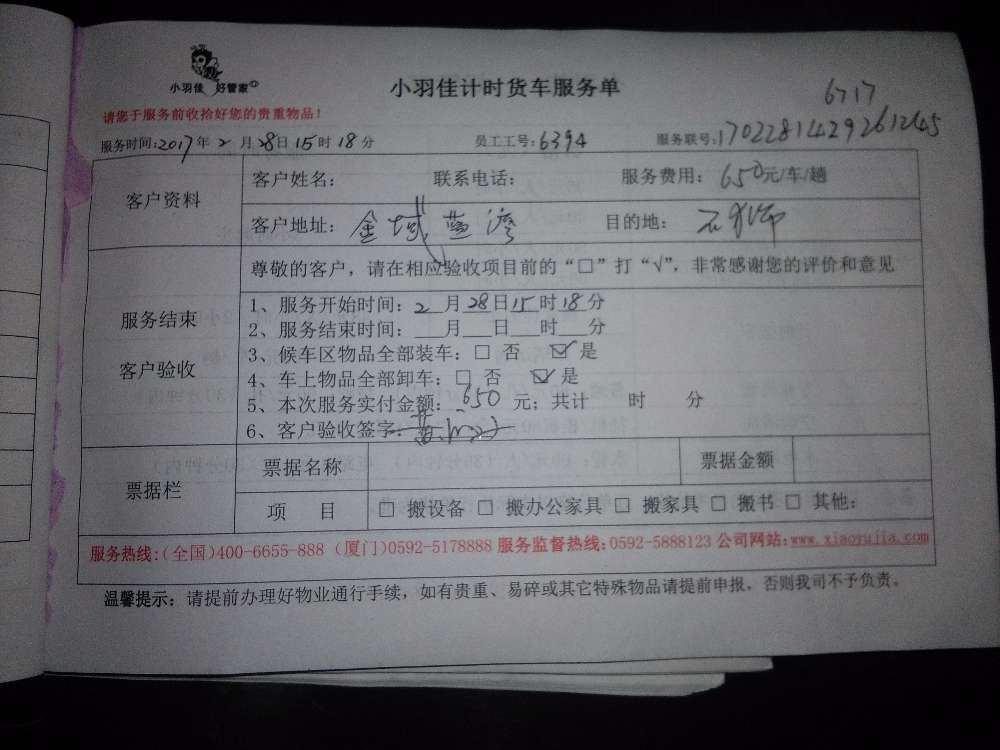 小羽佳 好管家
小羽佳计时货车服务单
6717
请您于服务前收拾好您的贵重物品！
服务时间:2017年2月28日15时18分 员工工号:6394 服务联号:17022814292612645
客户资料
客户姓名: 联系电话: 服务费用: 650元/车/趟
客户地址: 金域蓝湾 目的地: 石狮
服务结束
客户验收
尊敬的客户，请在相应验收项目前的“□”打“√”，非常感谢您的评价和意见
1、服务开始时间: 2月28日15时18分
2、服务结束时间: 月 日 时 分
3、候车区物品全部装车: □ 否 ☑ 是
4、车上物品全部卸车: □ 否 ☑ 是
5、本次服务实付金额: 650 元; 共计 时 分
6、客户验收签字:
票据栏
票据名称 票据金额
项 目 □ 搬设备 □ 搬办公家具 □ 搬家具 □ 搬书 □ 其他:
服务热线:(全国)400-6655-888 (厦门)0592-5178888 服务监督热线:0592-5888123 公司网站:www.xiaoyujia.com
温馨提示: 请提前办理好物业通行手续，如有贵重、易碎或其它特殊物品请提前申报，否则我司不予负责。